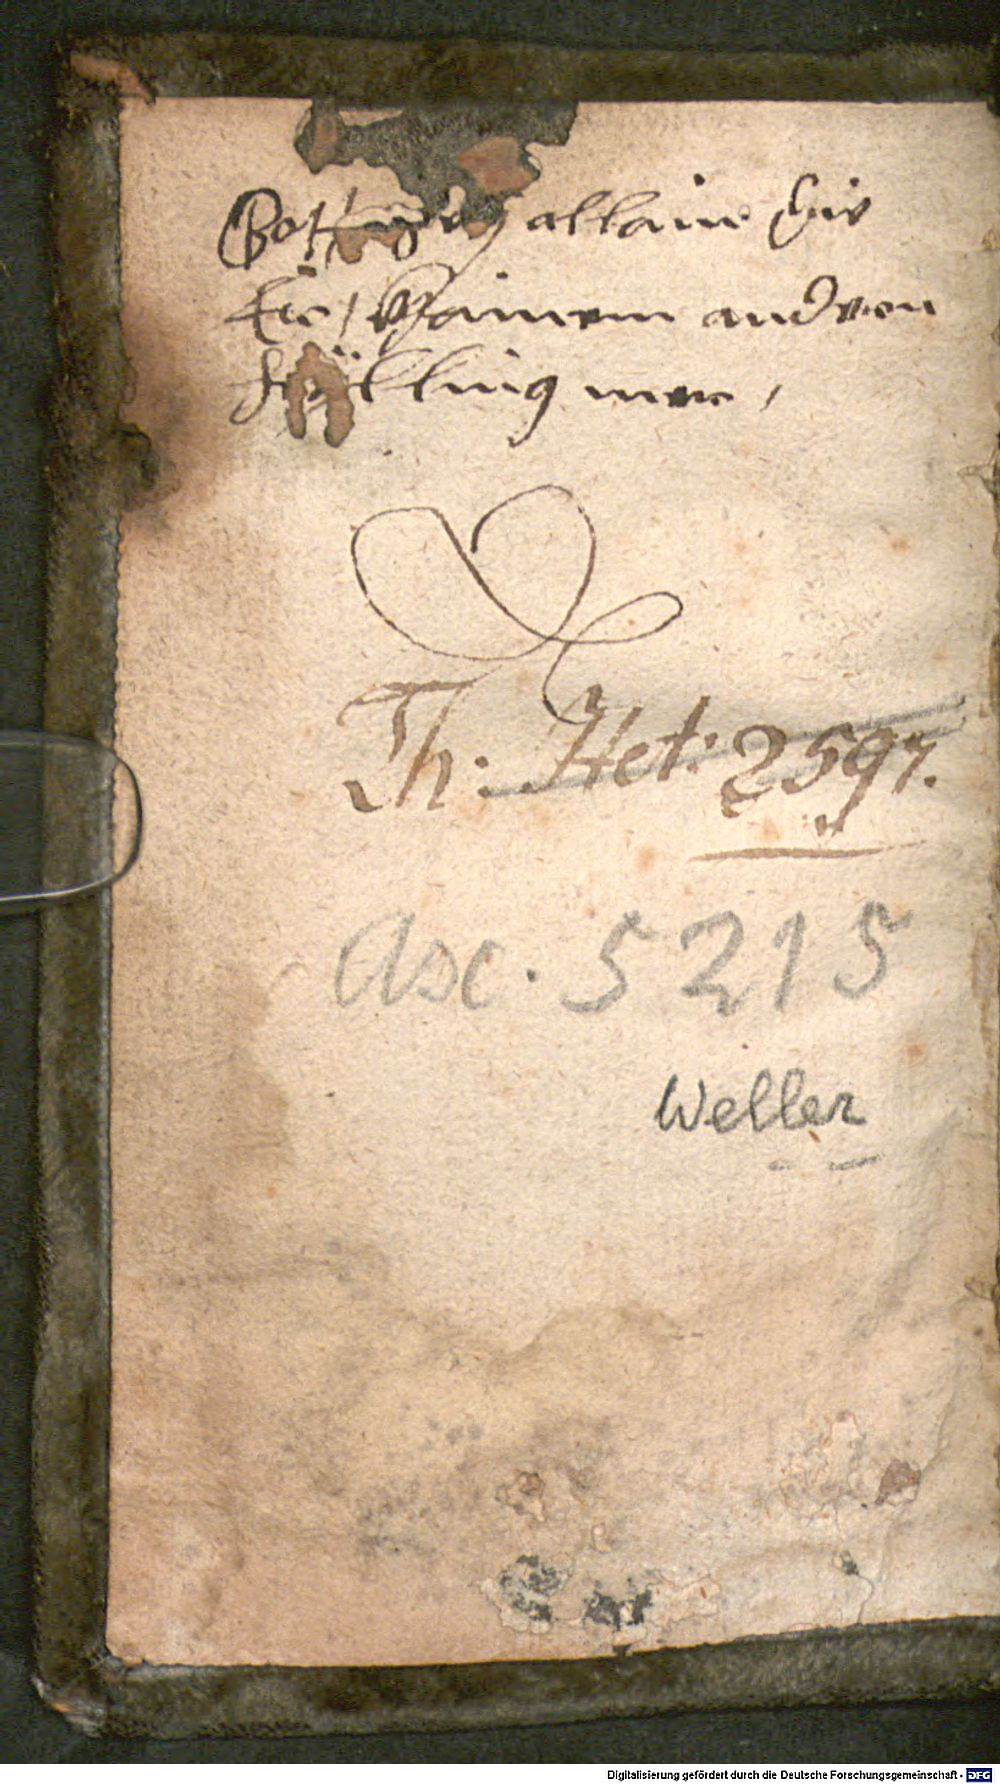 Gott allain die
Eer / Kainem andren
hailling mer /
Th: Het: 2597.
Asc. 5215
Weller
Digitalisierung gefördert durch die Deutsche Forschungsgemeinschaft - DFG